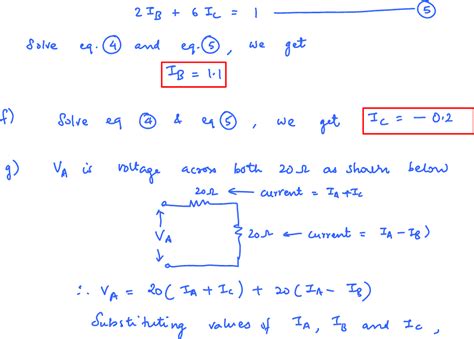 2 I_B + 6 I_C = 1 ⑤
Solve eq. ④ and eq. ⑤, we get
I_B = 1.1
f) Solve eq ④ & eq ⑤, we get I_C = - 0.2
g) V_A is voltage across both 20Ω as shown below
20Ω ← current = I_A + I_C
V_A
20Ω ← current = I_A - I_B)
∴ V_A = 20( I_A + I_C) + 20( I_A - I_B)
Substituting values of I_A, I_B and I_C,